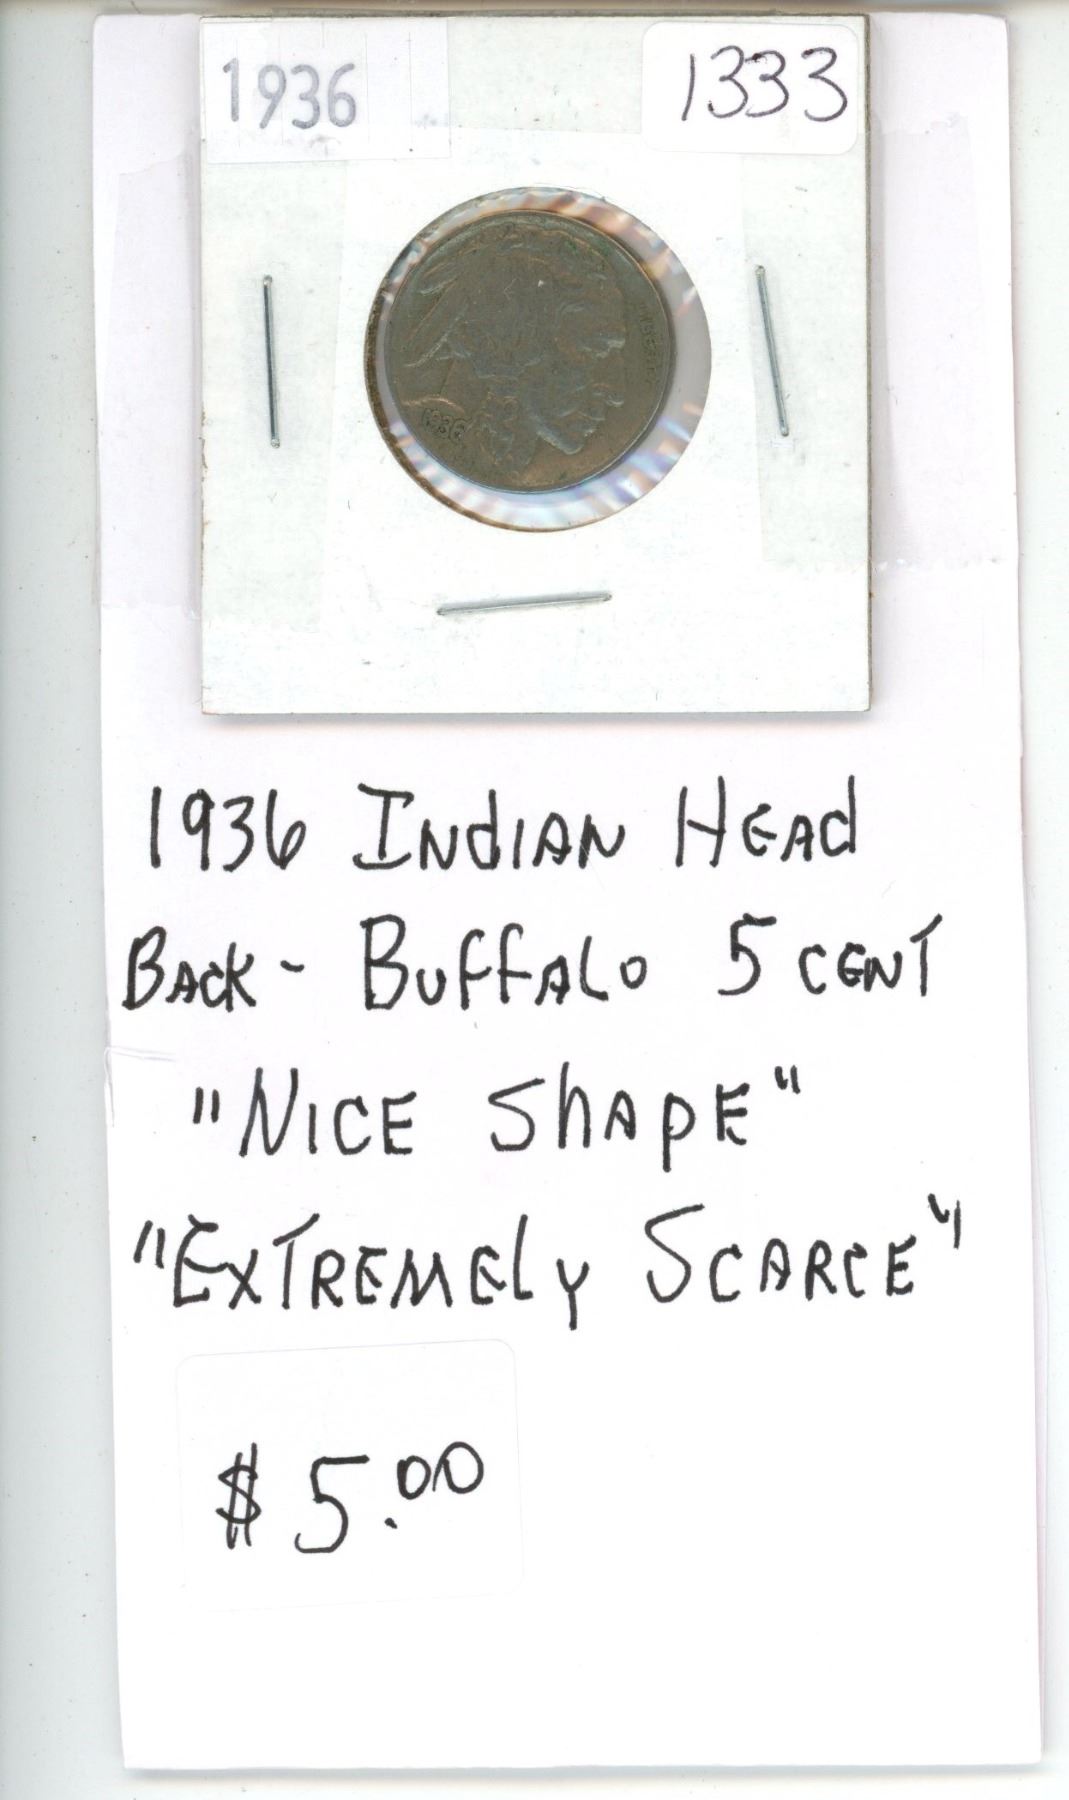 1936
1333
LIBERTY
1936
1936 Indian Head
Back - Buffalo 5 cent
"Nice Shape"
"Extremely Scarce"
$ 5.00